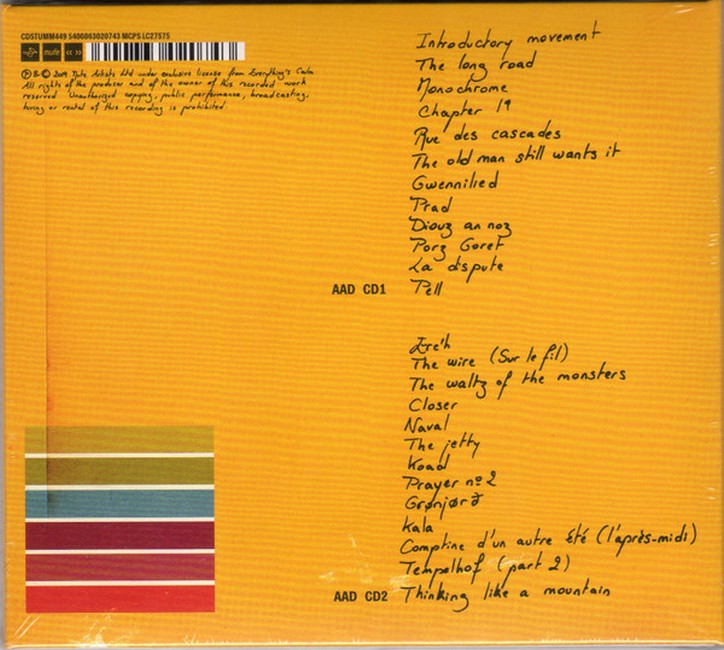 CDSTUMM449 5400863020743 MCPS LC27575
mute
℗ & © 2019 Mute Artists Ltd under exclusive license from Everything's Calm
All rights of the producer and of the owner of this recorded work
reserved. Unauthorized copying, public performance, broadcasting,
hiring or rental of this recording is prohibited.
Introductory movement
The long road
Monochrome
Chapter 19
Rue des cascades
The old man still wants it
Gwennilied
Prad
Diouz an noz
Porz Goret
La dispute
AAD CD1 Pell
Ere'h
The wire (Sur le fil)
The waltz of the monsters
Closer
Naval
The jetty
Koad
Prayer nº 2
Grønjørð
Kala
Comptine d'un autre été (l'après-midi)
Tempelhof (part 2)
AAD CD2 Thinking like a mountain